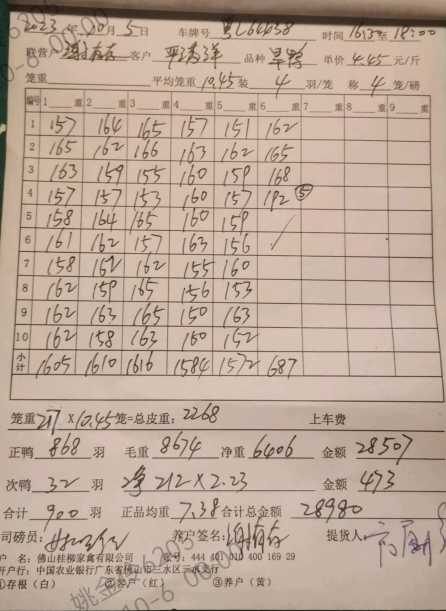 2023年10月5日 车牌号 粤L64458 时间 16:13至18:00
联营 客户 品种 单价 4.45 元/斤
笼重 平均笼重 10.45 装 4 羽/笼 称 4 笼/磅
编号 1 重 2 重 3 重 4 重 5 重 6 重 7 重 8 重 9 重
1 157 164 165 157 151 162
2 165 162 166 163 162 165
3 163 159 155 160 159 168
4 157 157 153 160 157 192 ⑤
5 158 164 165 160 159
6 161 162 157 163 156
7 158 162 162 155 160
8 162 159 165 156 153
9 162 163 165 150 163
10 162 158 163 160 152
小计 1605 1610 1616 1584 1572 687
笼重 217 X 10.45 笼=总皮重: 2268 上车费
正鸭 868 羽 毛重 8674 净重 6406 金额 28507
次鸭 32 羽 净 212 X 2.23 金额 473
合计 900 羽 正品均重 7.38 合计总金额 28980
司磅员: 养户签名: 提货人
户 名: 佛山桂柳家禽有限公司 账号: 444 401 010 400 169 29
开户行: 中国农业银行广东省佛山市三水区
①存根(白) ②客户(红) ③养户(黄)